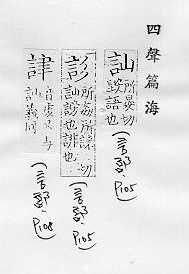 四聲篇海
訕
所晏切
謗語也
(言部)
P105
所姦所諫切
訕謗也誹也
(言部)
P105
音虔又与
訕義同
(言部)
P108